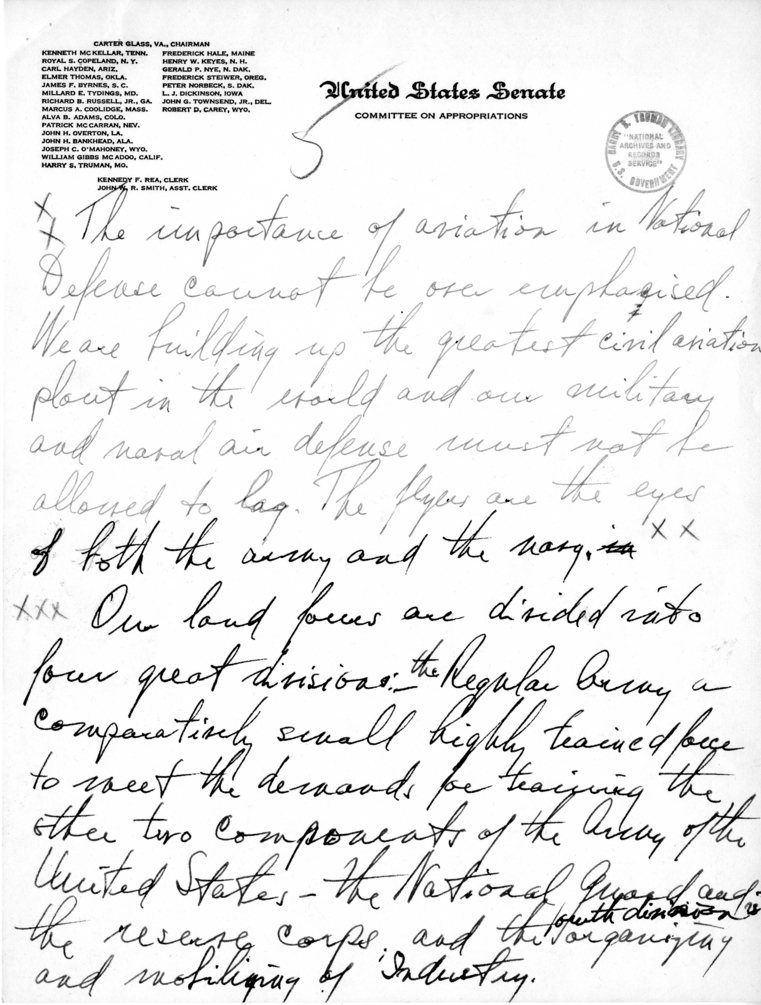 CARTER GLASS, VA., CHAIRMAN
KENNETH McKELLAR, TENN.
ROYAL S. COPELAND, N. Y.
CARL HAYDEN, ARIZ.
ELMER THOMAS, OKLA.
JAMES F. BYRNES, S. C.
MILLARD E. TYDINGS, MD.
RICHARD B. RUSSELL, JR., GA.
MARCUS A. COOLIDGE, MASS.
ALVA B. ADAMS, COLO.
PATRICK McCARRAN, NEV.
JOHN H. OVERTON, LA.
JOHN H. BANKHEAD, ALA.
JOSEPH C. O'MAHONEY, WYO.
WILLIAM GIBBS McADOO, CALIF.
HARRY S. TRUMAN, MO.
FREDERICK HALE, MAINE
HENRY W. KEYES, N. H.
GERALD P. NYE, N. DAK.
FREDERICK STEIWER, OREG.
PETER NORBECK, S. DAK.
L. J. DICKINSON, IOWA
JOHN G. TOWNSEND, JR., DEL.
ROBERT D. CAREY, WYO.
KENNEDY F. REA, CLERK
JOHN W. R. SMITH, ASST. CLERK
United States Senate
COMMITTEE ON APPROPRIATIONS
5
HARRY S. TRUMAN LIBRARY
"NATIONAL
ARCHIVES AND
RECORDS
SERVICE"
U.S. GOVERNMENT
X
X The importance of aviation in National
Defense cannot be over emphasised.
We are building up the greatest civil aviation
plant in the world and our military
and naval air defense must not be
allowed to lag. The flyers are the eyes
of both the army and the navy. in X X
XXX Our land forces are divided into
four great divisions:- the Regular Army a
comparatively small highly trained force
to meet the demands for training the
other two components of the Army of the
United States - the National Guard and
the reserve corps. and the fourth division is
organizing
and mobilizing of Industry.